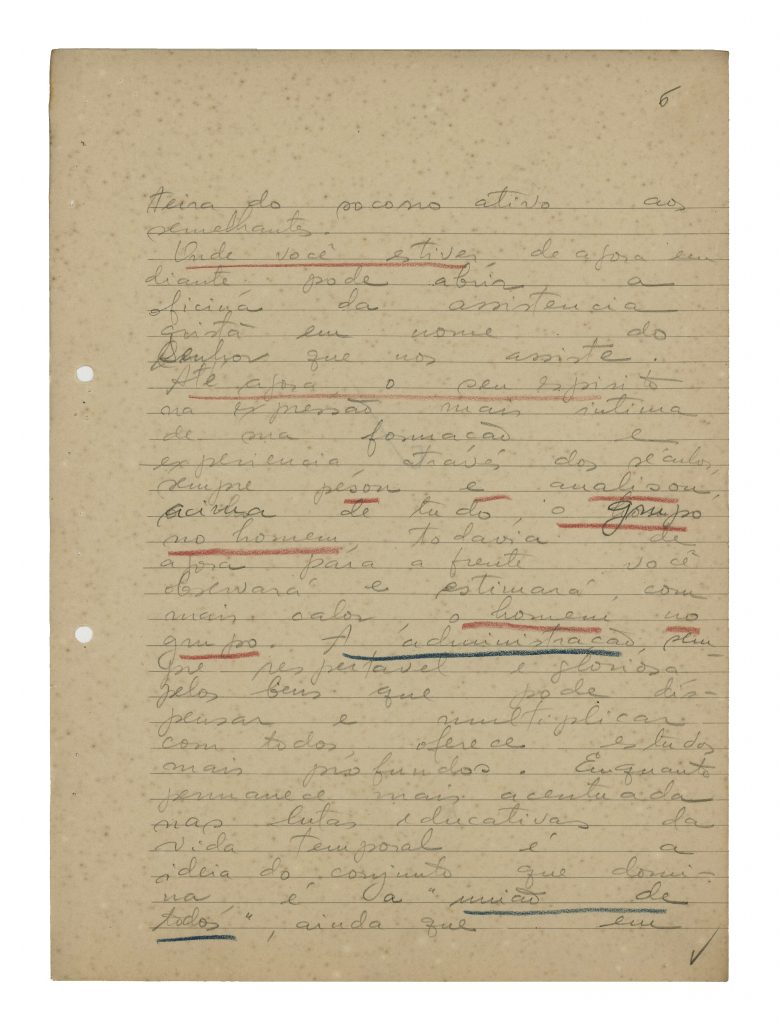 6
teira do socorro ativo aos
semelhantes.
Onde você estiver, de agora em
diante pode abrir a
oficina da assistencia
cristã em nome do
Senhor que nos assiste.
Até agora, o seu espirito
na expressão mais intima
de sua formação e
experiencia através dos séculos,
sempre pesou e analisou,
acima de tudo, o grupo
no homem, todavia de
agora para a frente você
observará e estimará, com
mais calor, o homem no
grupo. A administração, sem-
pre respeitável e gloriosa
pelos bens que pode dis-
pensar e multiplicar
com todos, oferece estudos
mais profundos. Enquanto
permanece mais acentuada
nas lutas educativas da
vida temporal é a
ideia do conjunto que domi-
na, é a "união de
todos", ainda que em